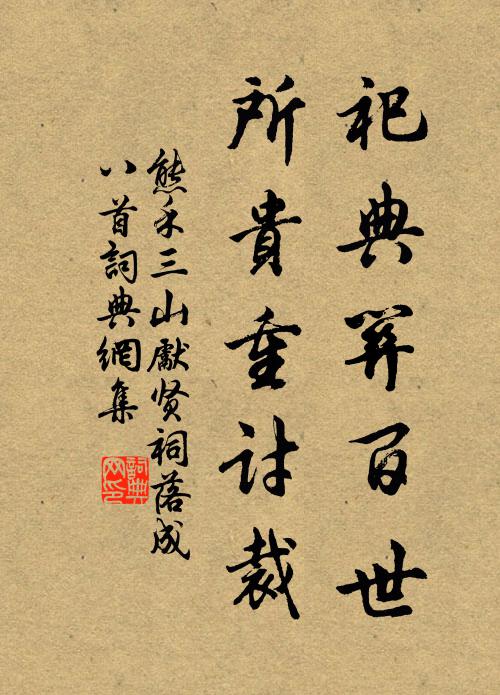 祀典關百世
所貴重討裁
熊禾三山獻贤祠落成
八首詞典網集
詞典
网印